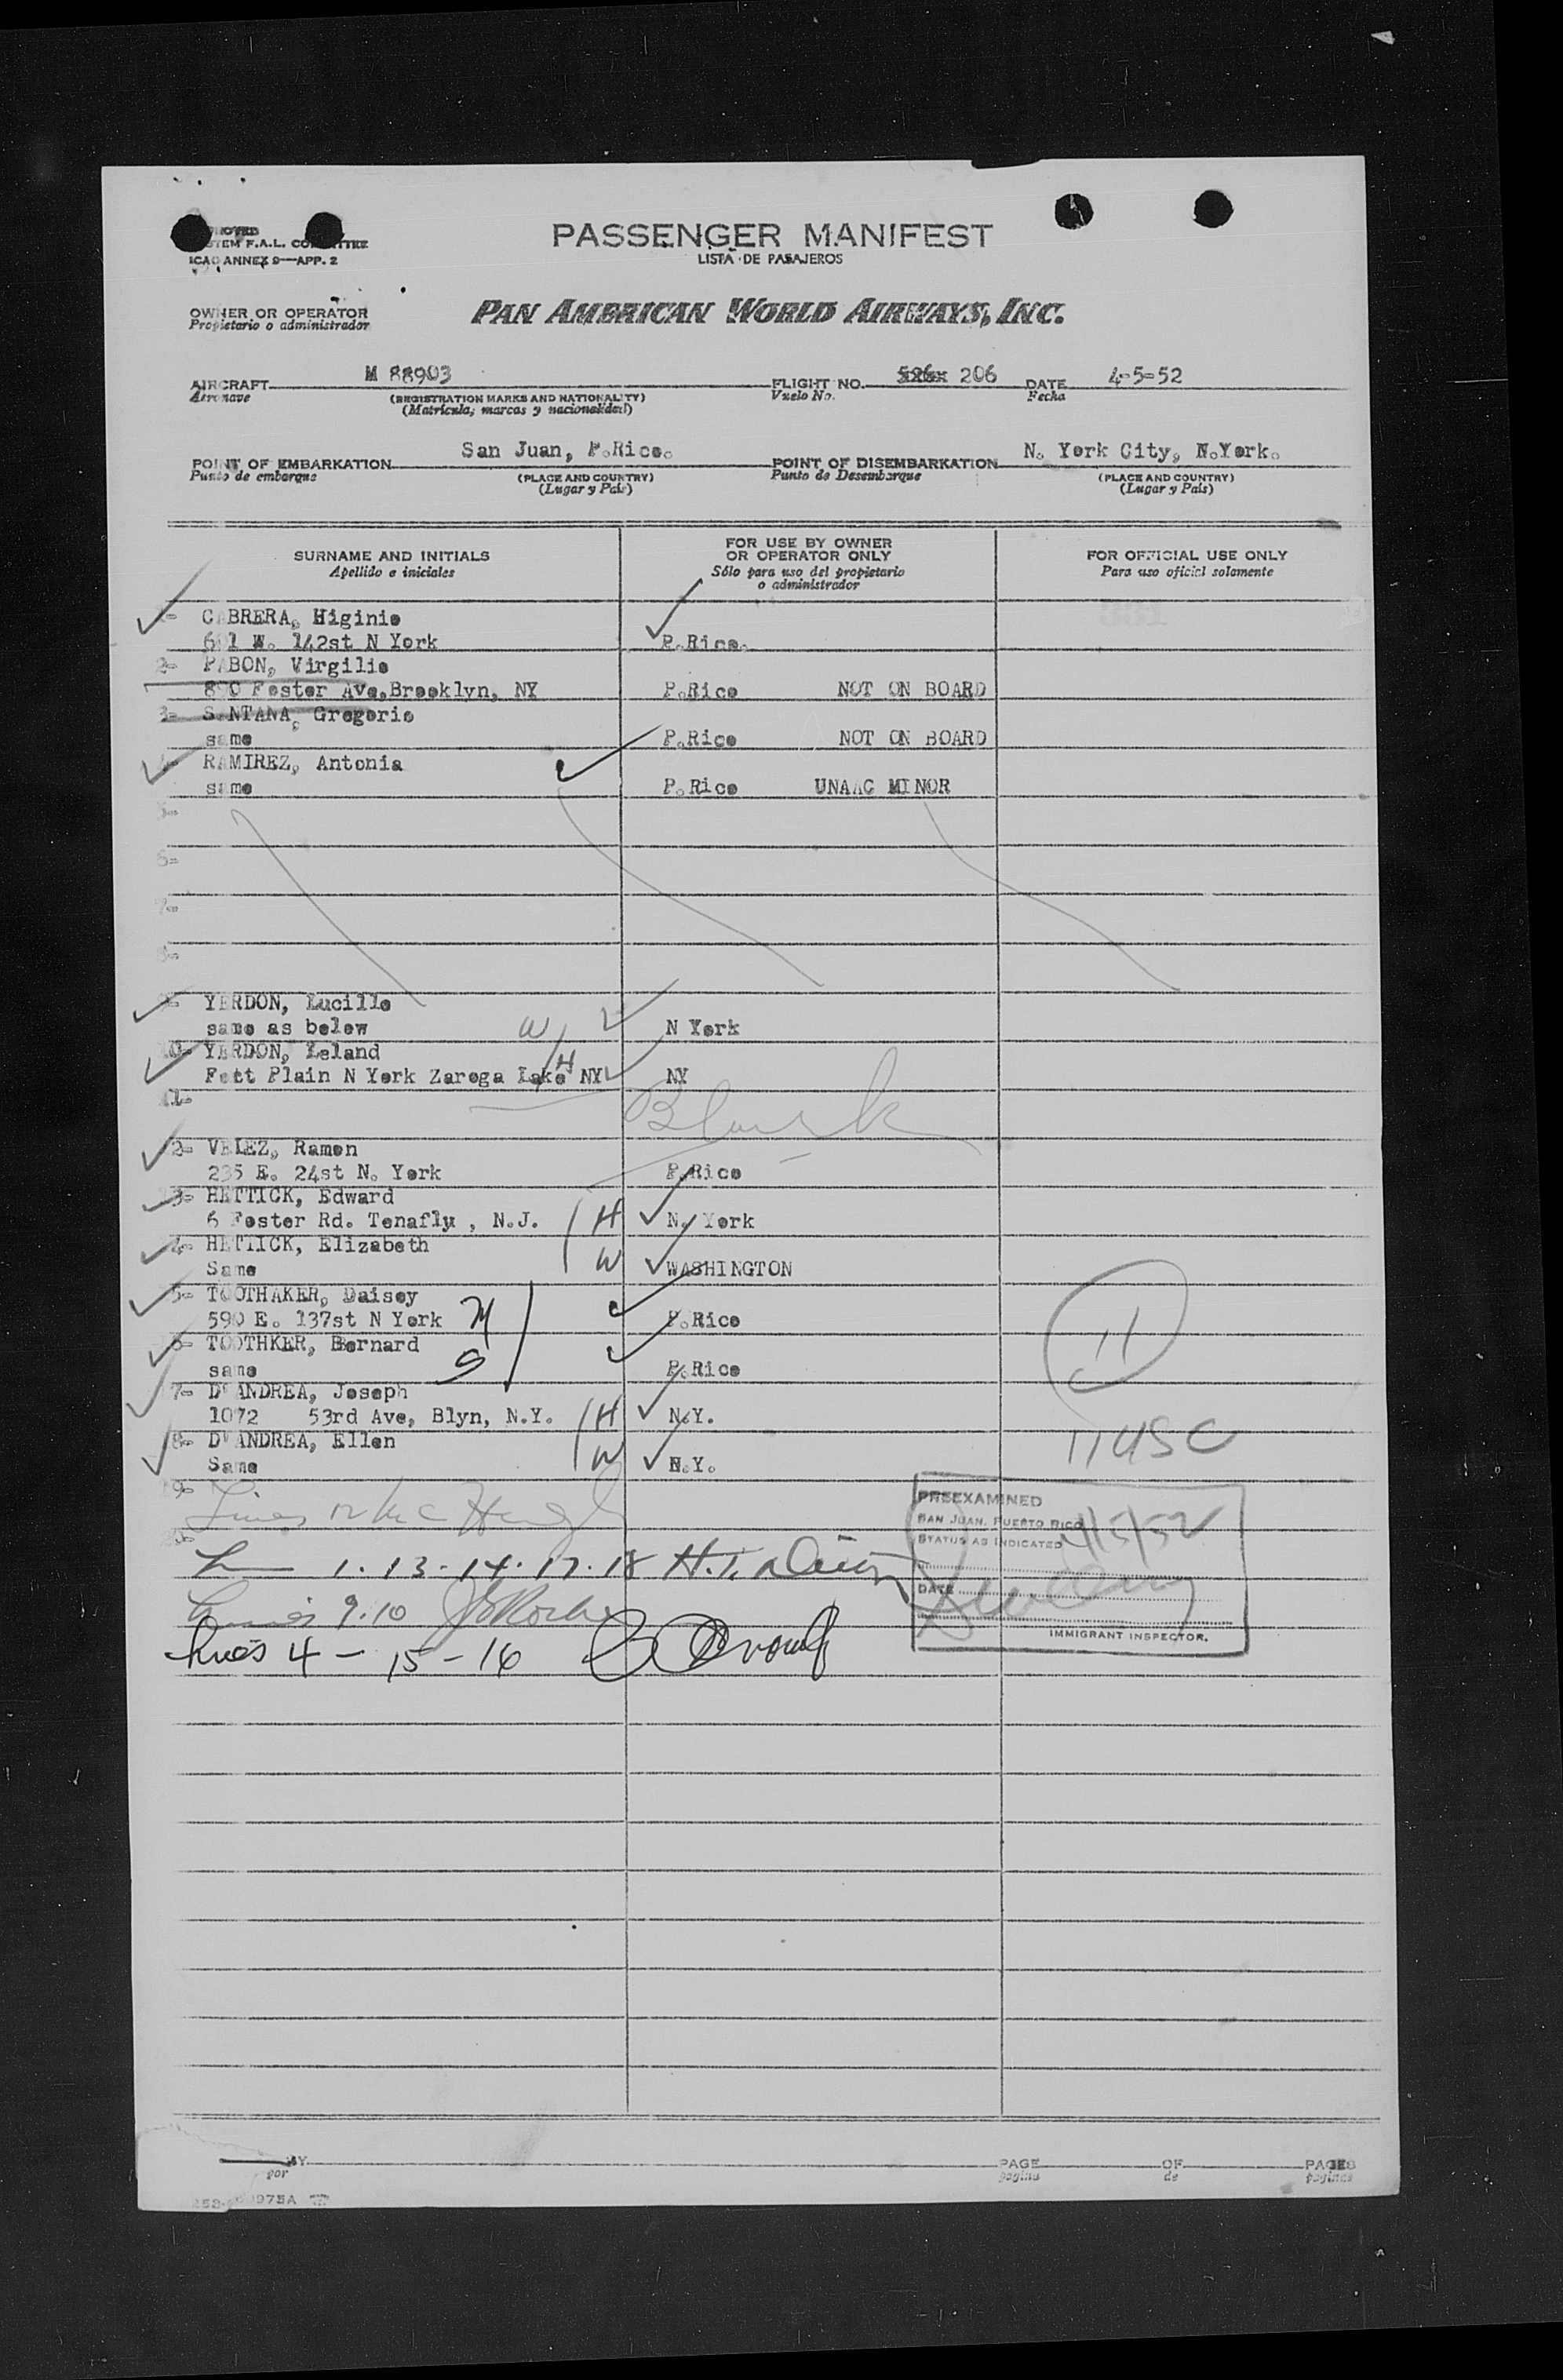 PASSENGER MANIFEST
LISTA DE PASAJEROS
ICAO ANNEX 9—APP. 2
OWNER OR OPERATOR
Propietario o administrador
PAN AMERICAN WORLD AIRWAYS, INC.
AIRCRAFT M 88903 FLIGHT NO. 526x 206 DATE 4-5-52
Aeronave (REGISTRATION MARKS AND NATIONALITY) Vuelo No. Fecha
(Matrícula, marcas y nacionalidad)
POINT OF EMBARKATION San Juan, P.Rico. POINT OF DISEMBARKATION N. York City, N.York.
Punto de embarque (PLACE AND COUNTRY) Punto de Desembarque (PLACE AND COUNTRY)
(Lugar y País) (Lugar y País)
SURNAME AND INITIALS FOR USE BY OWNER OR OPERATOR ONLY FOR OFFICIAL USE ONLY
Apellido e iniciales Sólo para uso del propietario o administrador Para uso oficial solamente
CABRERA, Higinio
601 W. 142st N York P.Rico.
2- PABON, Virgilio
890 Foster Ave,Brooklyn, NY P.Rico NOT ON BOARD
3- SANTANA, Gregorio
same P.Rico NOT ON BOARD
RAMIREZ, Antonia
same P.Rico UNAAC MINOR
5-
6-
7-
8-
YERDON, Lucille
same as below W N York
10- YERDON, Leland
Fott Plain N York Zaroga Lake NY H NY
11- Blank
2- VELEZ, Ramon
235 E. 24st N. York P.Rico
3- HETTICK, Edward
6 Foster Rd. Tenafly , N.J. H N. York
4- HETTICK, Elizabeth
Same W WASHINGTON
5- TOOTHAKER, Daisey
590 E. 137st N York M P.Rico
6- TOOTHKER, Bernard
same S P.Rico
7- D'ANDREA, Joseph
1072 53rd Ave, Blyn, N.Y. H N.Y.
8- D'ANDREA, Ellen
Same W N.Y.
11
11 USC
19-
1 . 13 - 14 . 17 . 18
9.10
lines 4 - 15 - 16
PREEXAMINED
SAN JUAN, PUERTO RICO
STATUS AS INDICATED 4/5/52
DATE
IMMIGRANT INSPECTOR.
BY PAGE OF PAGES
por página de páginas